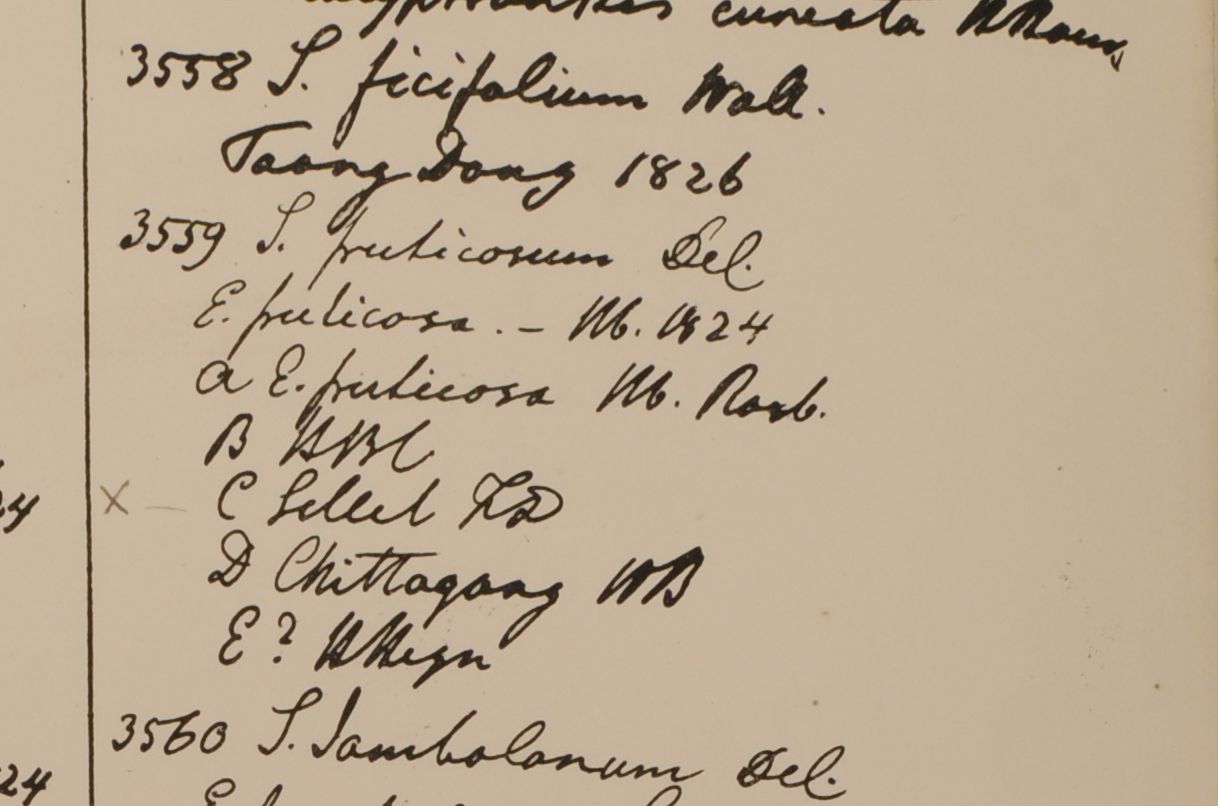 cuneata
3558 S. ficifolium Wall.
Taong Dong 1826
3559 S. fruticosum Del.
E. fruticosa. – Hb. 1824
a E. fruticosa Hb. Roxb.
B HBC
C Sellet FD
D Chittagong HB
E? HHeyn
3560 S. Jambolanum Del.
24